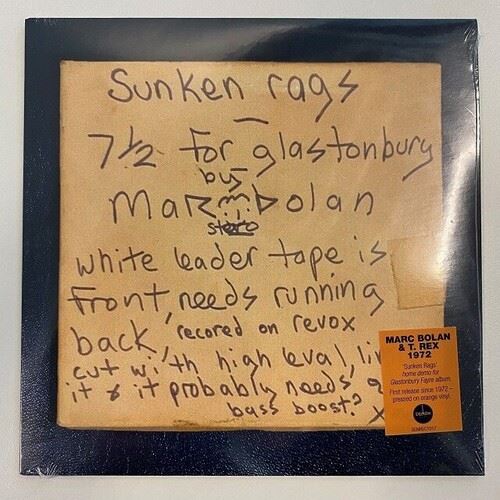 Sunken rags
7 1/2 for glastonbury
by
Marc Bolan
stereo
white leader tape is
front, needs running
back, recored on revox
cut with high leval, li
it & it probably needs a
bass boost? x
MARC BOLAN
& T. REX
1972
'Sunken Rags'
home demo for
Glastonbury Fayre album.
First release since 1972 –
pressed on orange vinyl.
DEMON